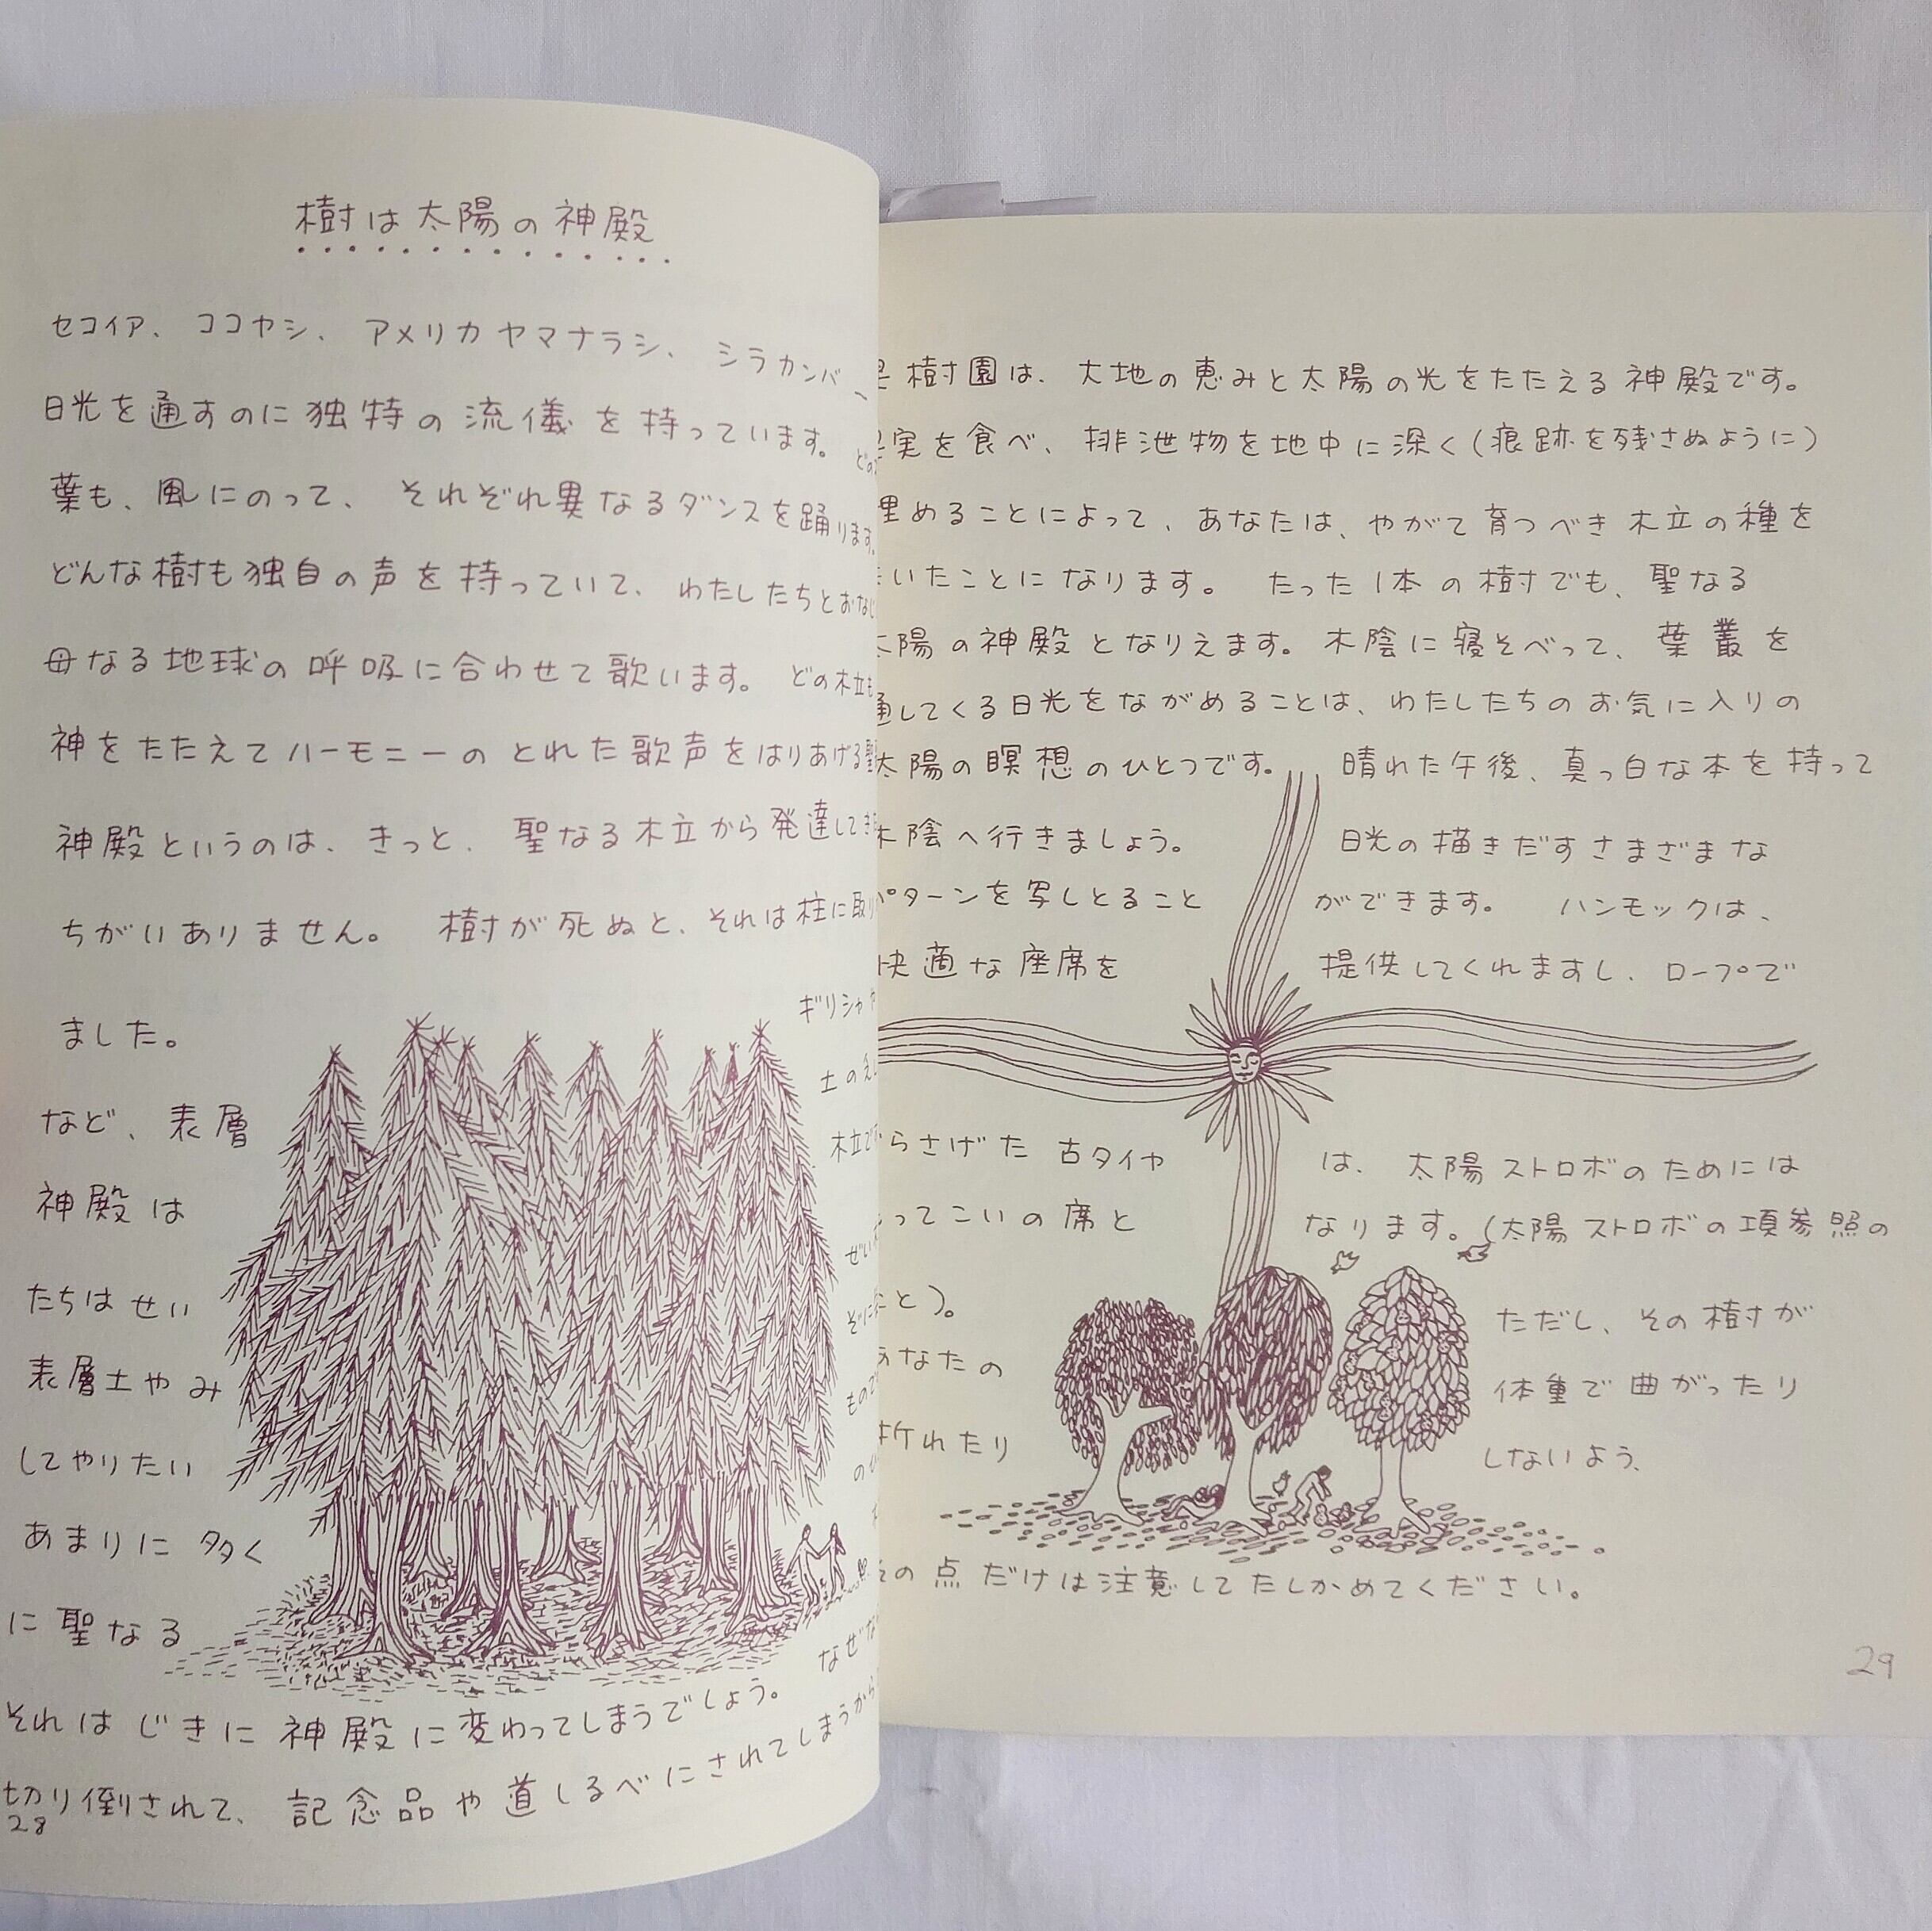 樹は太陽の神殿
セコイア、ココヤシ、アメリカヤマナラシ、シラカンバ
日光を通すのに独特の流儀を持っています。どの
葉も、風にのって、それぞれ異なるダンスを踊ります。
どんな樹も独自の声を持っていて、わたしたちとおなじ
母なる地球の呼吸に合わせて歌います。どの木立も
神をたたえてハーモニーのとれた歌声をはりあげる聖
神殿というのは、きっと、聖なる木立から発達してき
ちがいありません。樹が死ぬと、それは柱に取り
ました。 ギリシャや
など、表層 土の
神殿は 木立で
たちはせい ぜい
表層土やみ
してやりたい もので
あまりに多く の
に聖なる
それはじきに神殿に変わってしまうでしょう。 なぜな
切り倒されて、記念品や道しるべにされてしまうから
28
樹園は、大地の恵みと太陽の光をたたえる神殿です。
実を食べ、排泄物を地中に深く(痕跡を残さぬように)
埋めることによって、あなたは、やがて育つべき木立の種を
いたことになります。たった1本の樹でも、聖なる
太陽の神殿となりえます。木陰に寝そべって、葉叢を
通してくる日光をながめることは、わたしたちのお気に入りの
太陽の瞑想のひとつです。晴れた午後、真っ白な本を持って
木陰へ行きましょう。日光の描きだすさまざまな
パターンを写しとることができます。ハンモックは、
快適な座席を提供してくれますし、ロープで
らさげた古タイヤは、太陽ストロボのためには
ってこいの席となります。(太陽ストロボの項参照の
こと)。ただし、その樹が
あなたの体重で曲がったり
折れたりしないよう、
その点だけは注意してたしかめてください。
29